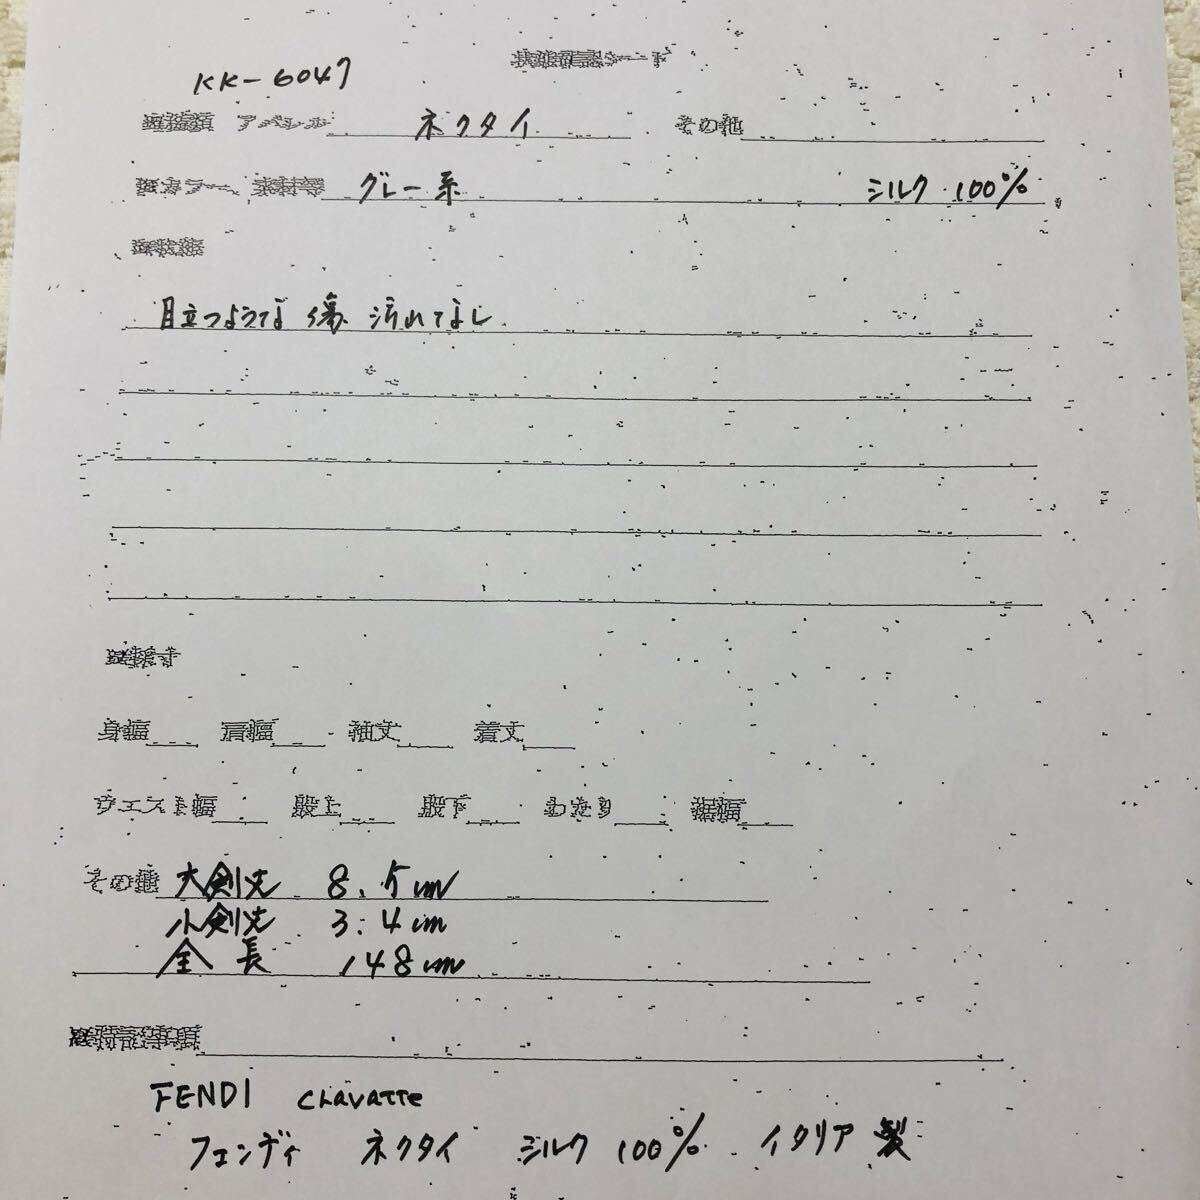 KK-6047
アパレル ネクタイ その他
グレー系 シルク 100%
目立つような 傷 汚れてなし
身幅 肩幅 袖丈 着丈
ウエスト幅 股上 股下 わたり 裾幅
その他 大剣先 8.5cm
小剣先 3.4cm
全長 148cm
特記事項
FENDI CraVaTTe
フェンディ ネクタイ シルク 100% イタリア製